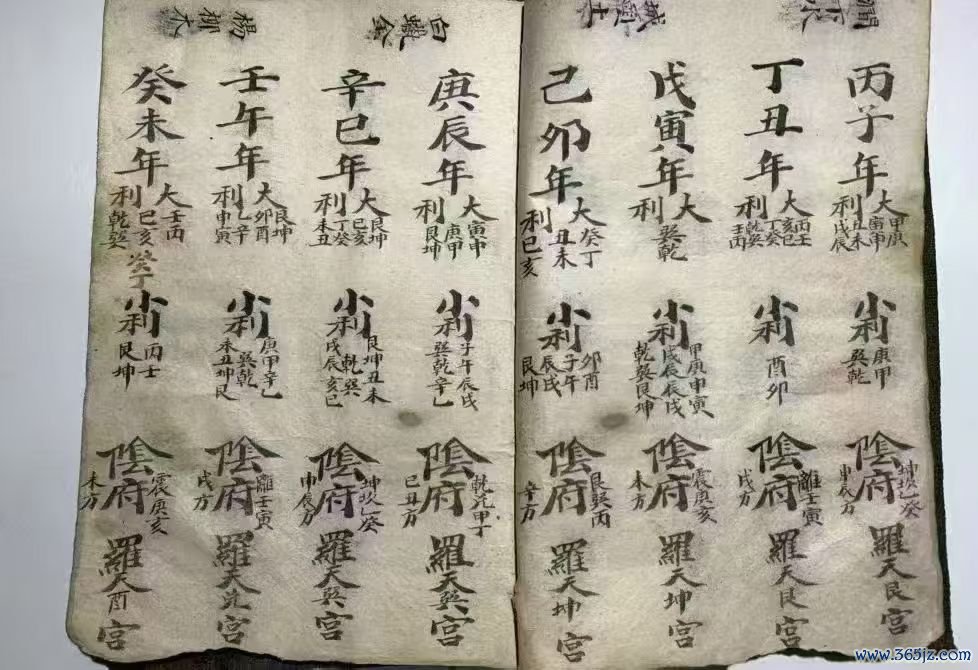 澗下水
丙子年
大甲庚寅申
利丑未戌辰
小利庚甲巽乾
陰府坤坎乙癸申辰方
羅天艮宮
丁丑年
大丙壬亥巳
利丁癸乾巽壬丙
小利酉卯
陰府離壬寅戌方
羅天艮宮
城頭土
戊寅年
大利巽乾
小利甲庚申寅戌辰辰戌乾巽艮坤
陰府震庚亥未方
羅天坤宮
己卯年
大癸丁丑未
利巳亥
小利卯酉子午辰戌艮坤
陰府艮巽丙辛方
羅天坤宮
白蠟金
庚辰年
大寅申庚甲
利艮坤
小利子午辰戌巽乾辛乙
陰府乾兌甲丁巳丑方
羅天巽宮
辛巳年
大艮坤巳亥
利丁癸未丑
小利艮坤丑未乾巽亥巳戌辰
陰府坤坎乙癸申辰方
羅天巽宮
楊柳木
壬午年
大艮坤卯酉
利乙辛申寅
小利庚甲辛乙巽乾坤艮未丑
陰府離壬寅戌方
羅天兌宮
癸未年
大壬丙巳亥
利乾巽癸丁
小利丙壬艮坤
陰府震庚亥未方
羅天酉宮
www.365jz.com